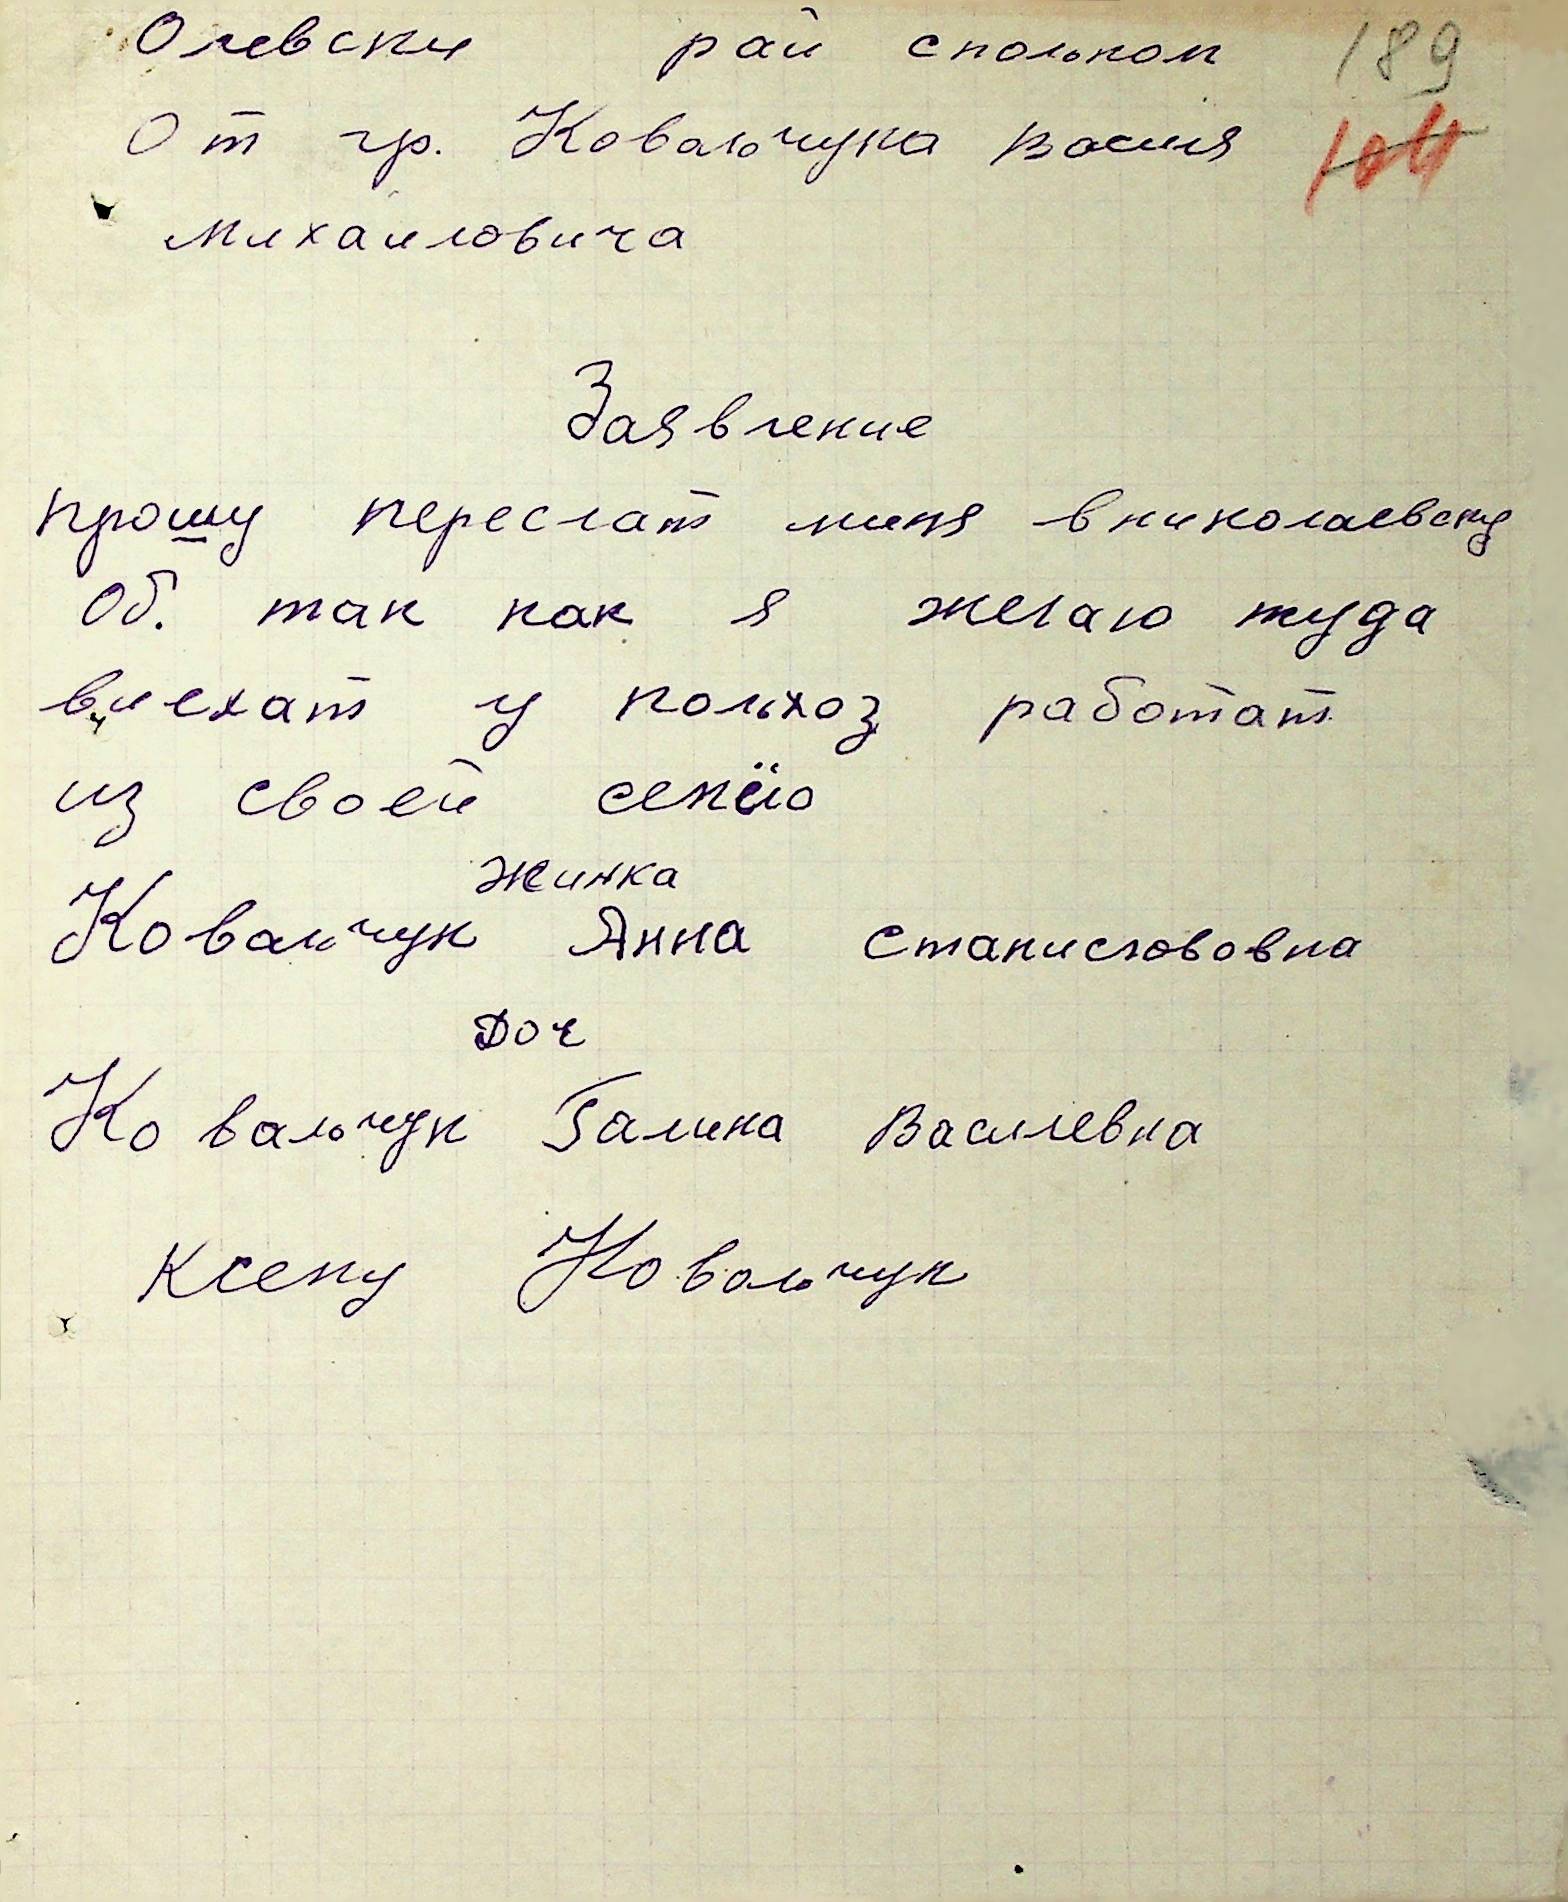 Олевски рай спольком 189
От гр. Ковальчука Василя 104
михаиловича
Заявление
прошу переслат миня вниколаевску
Об. так как я желаю туда
виехат у кольхоз работат
из своей семёю
жинка
Ковальчук Анна Станиславовна
Доч
Ковальчук Галина Василевна
Ксему Ковальчук